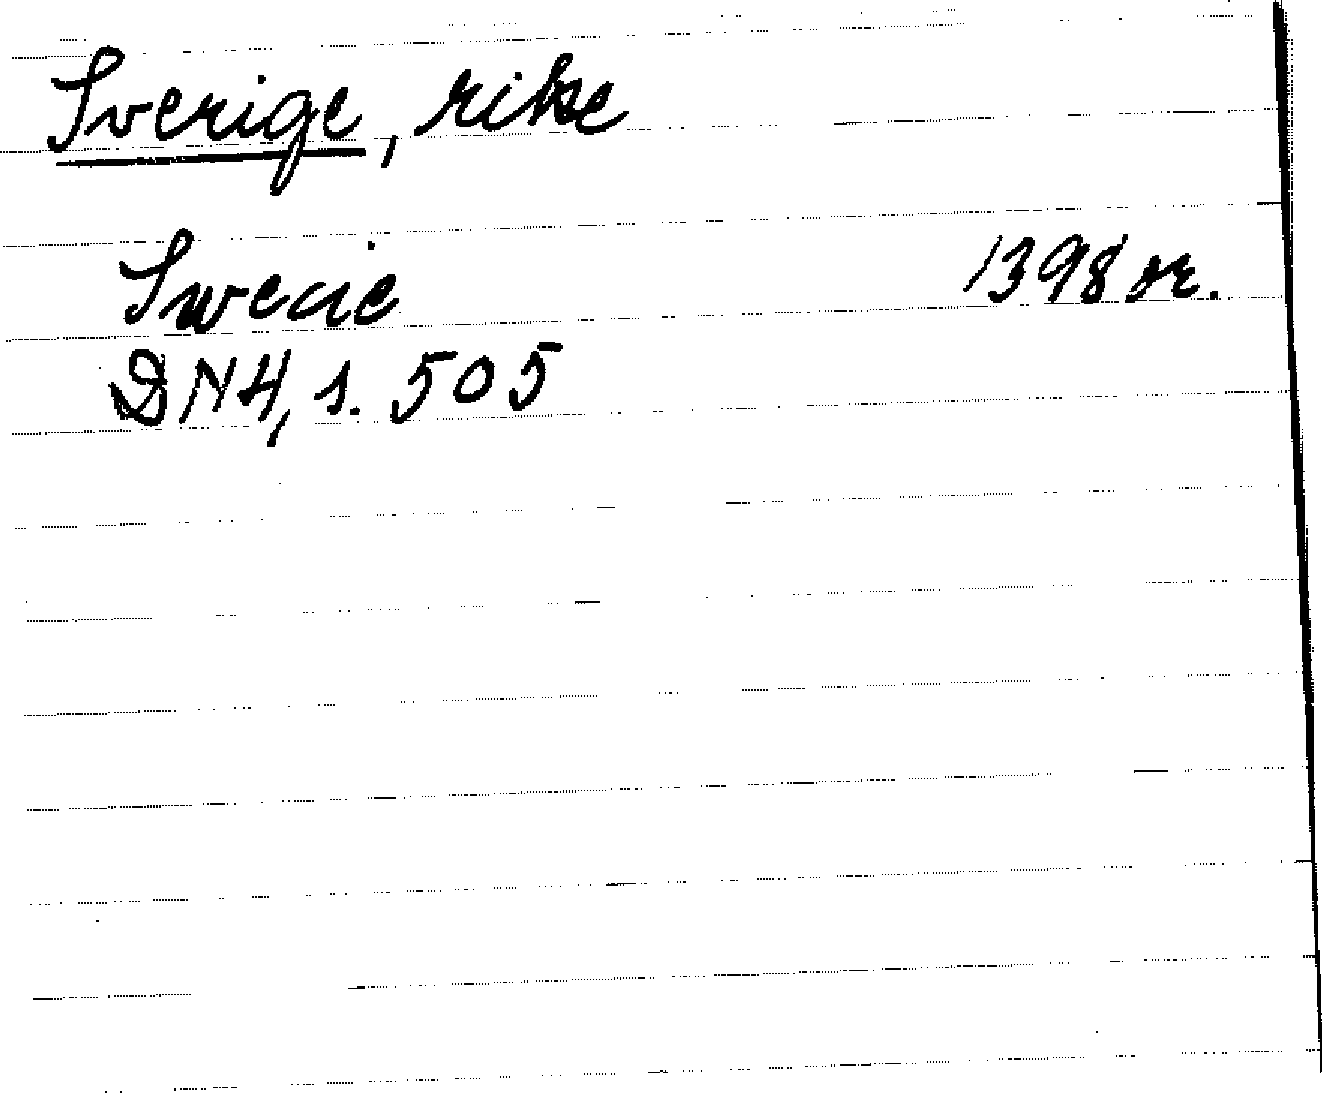 Sverige, rike
Swecie 1398 or.
DN4, s. 505